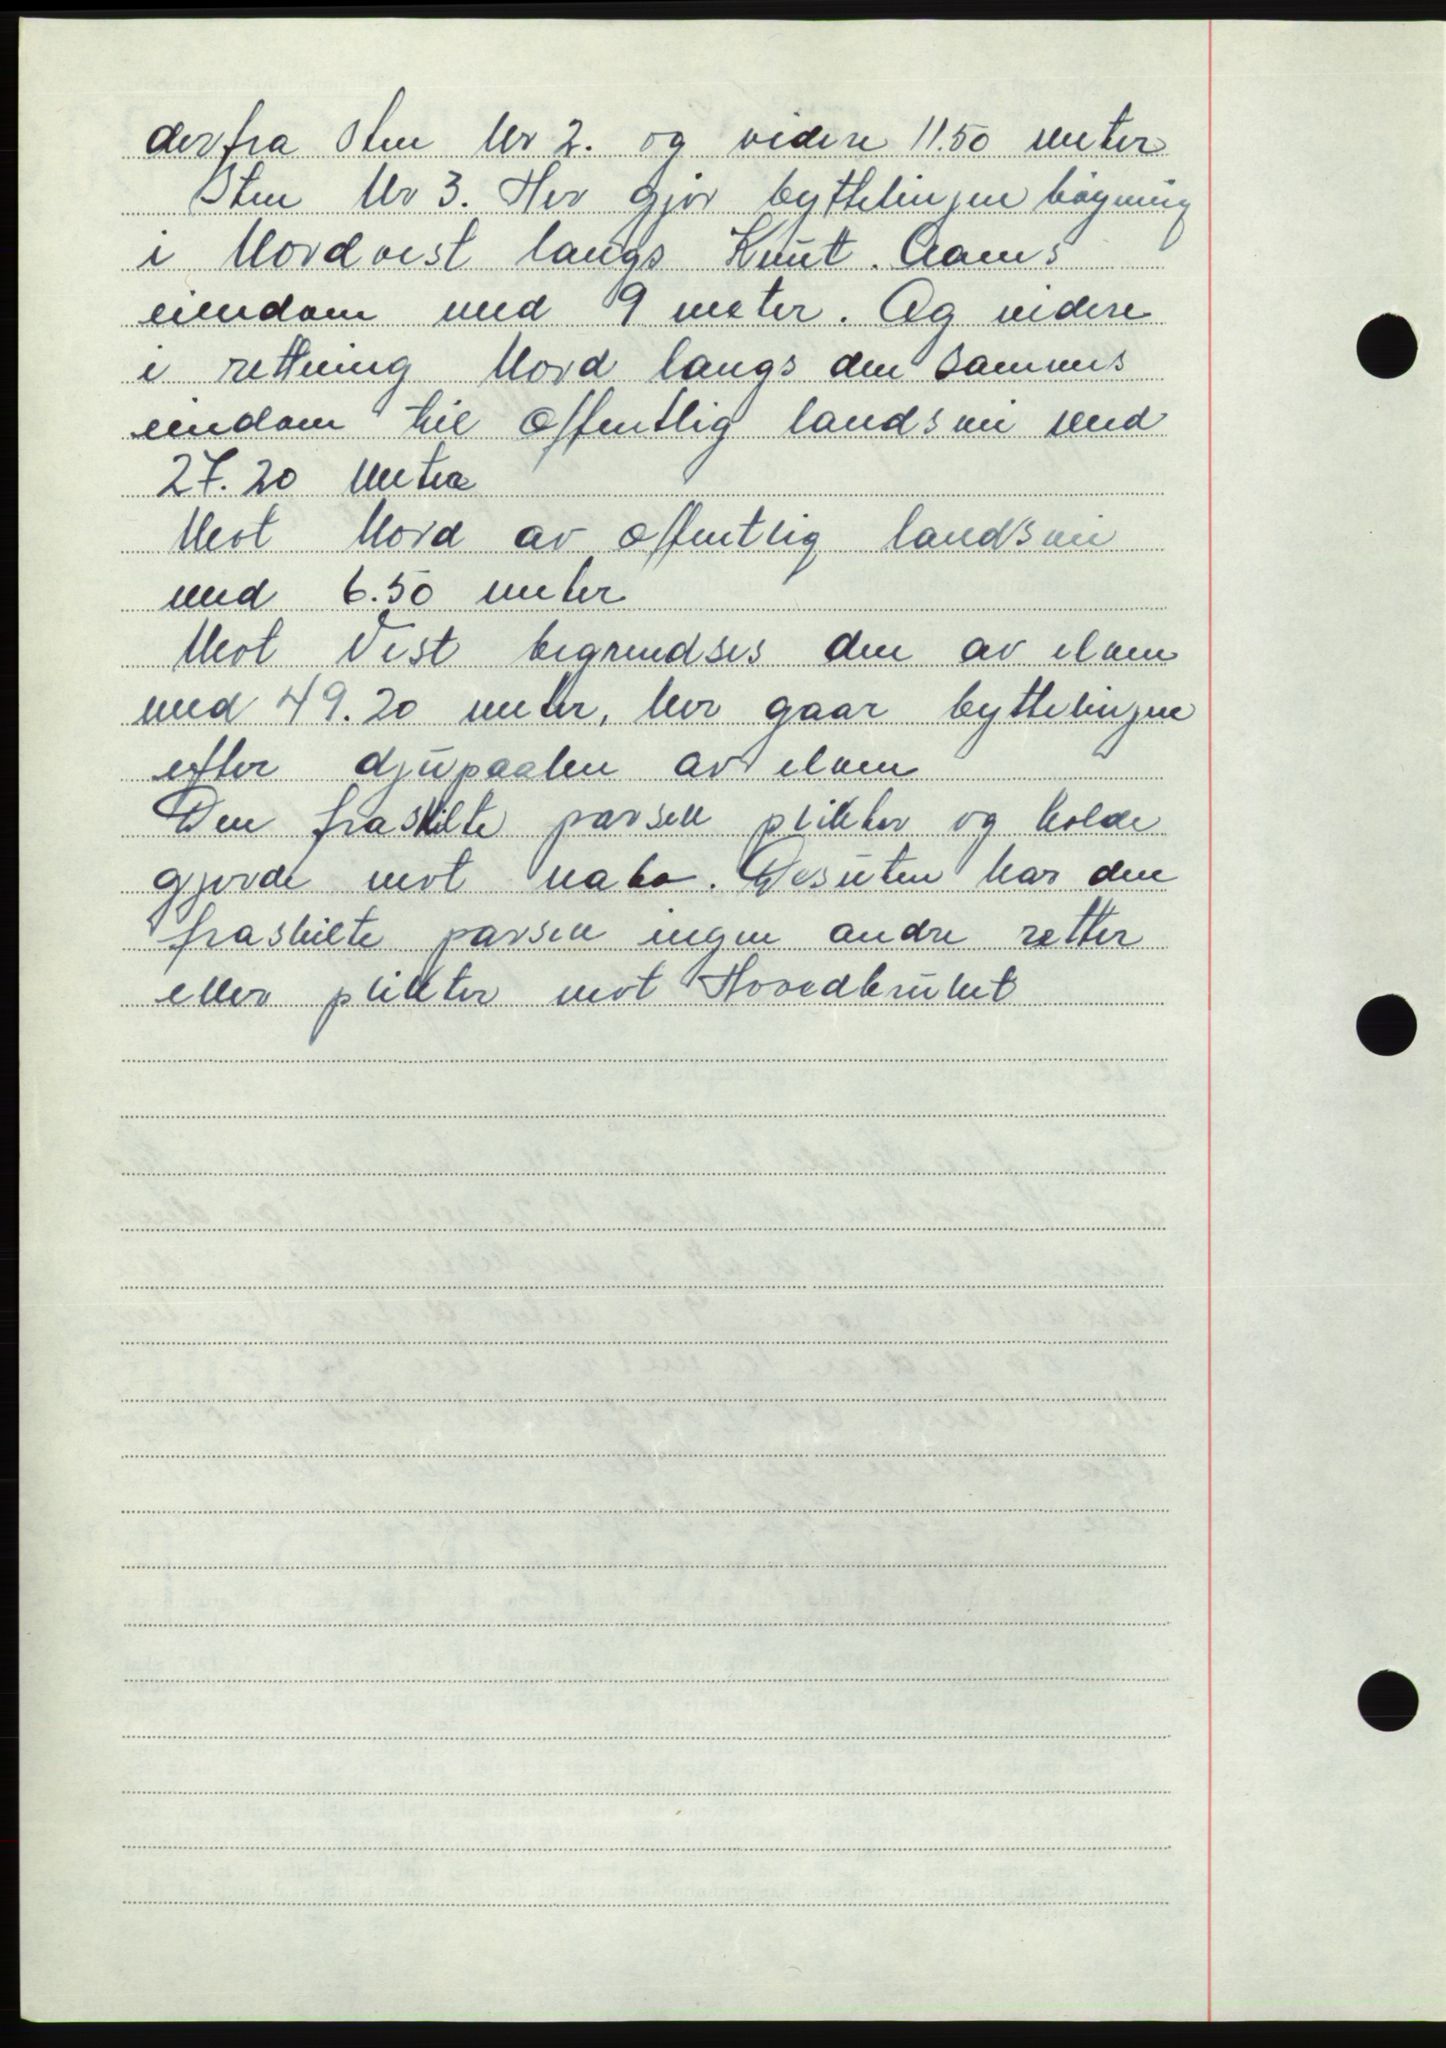 derfra Sten Nr 2. og videre 11.50 meter
Sten Nr 3. Her gjör byttelinjen bögning
i Nordvest langs Knut. Aams
eiendom med 9 meter. Og videre
i rettning Nord langs den sammes
eindom til offentlig landsvei med
27.20 Meter
Mot Nord av offentlig landsvei
med 6.50 meter
Mot Vest begrendses den av elven
med 49.20 meter, her gaar byttelinjen
efter djupaalen av elven
Den fraskilte parsell plikter og holde
gjerde mot nabo. Desuten har den
fraskilte parsell ingen andre retter
eller plikter mot Hovedbruket